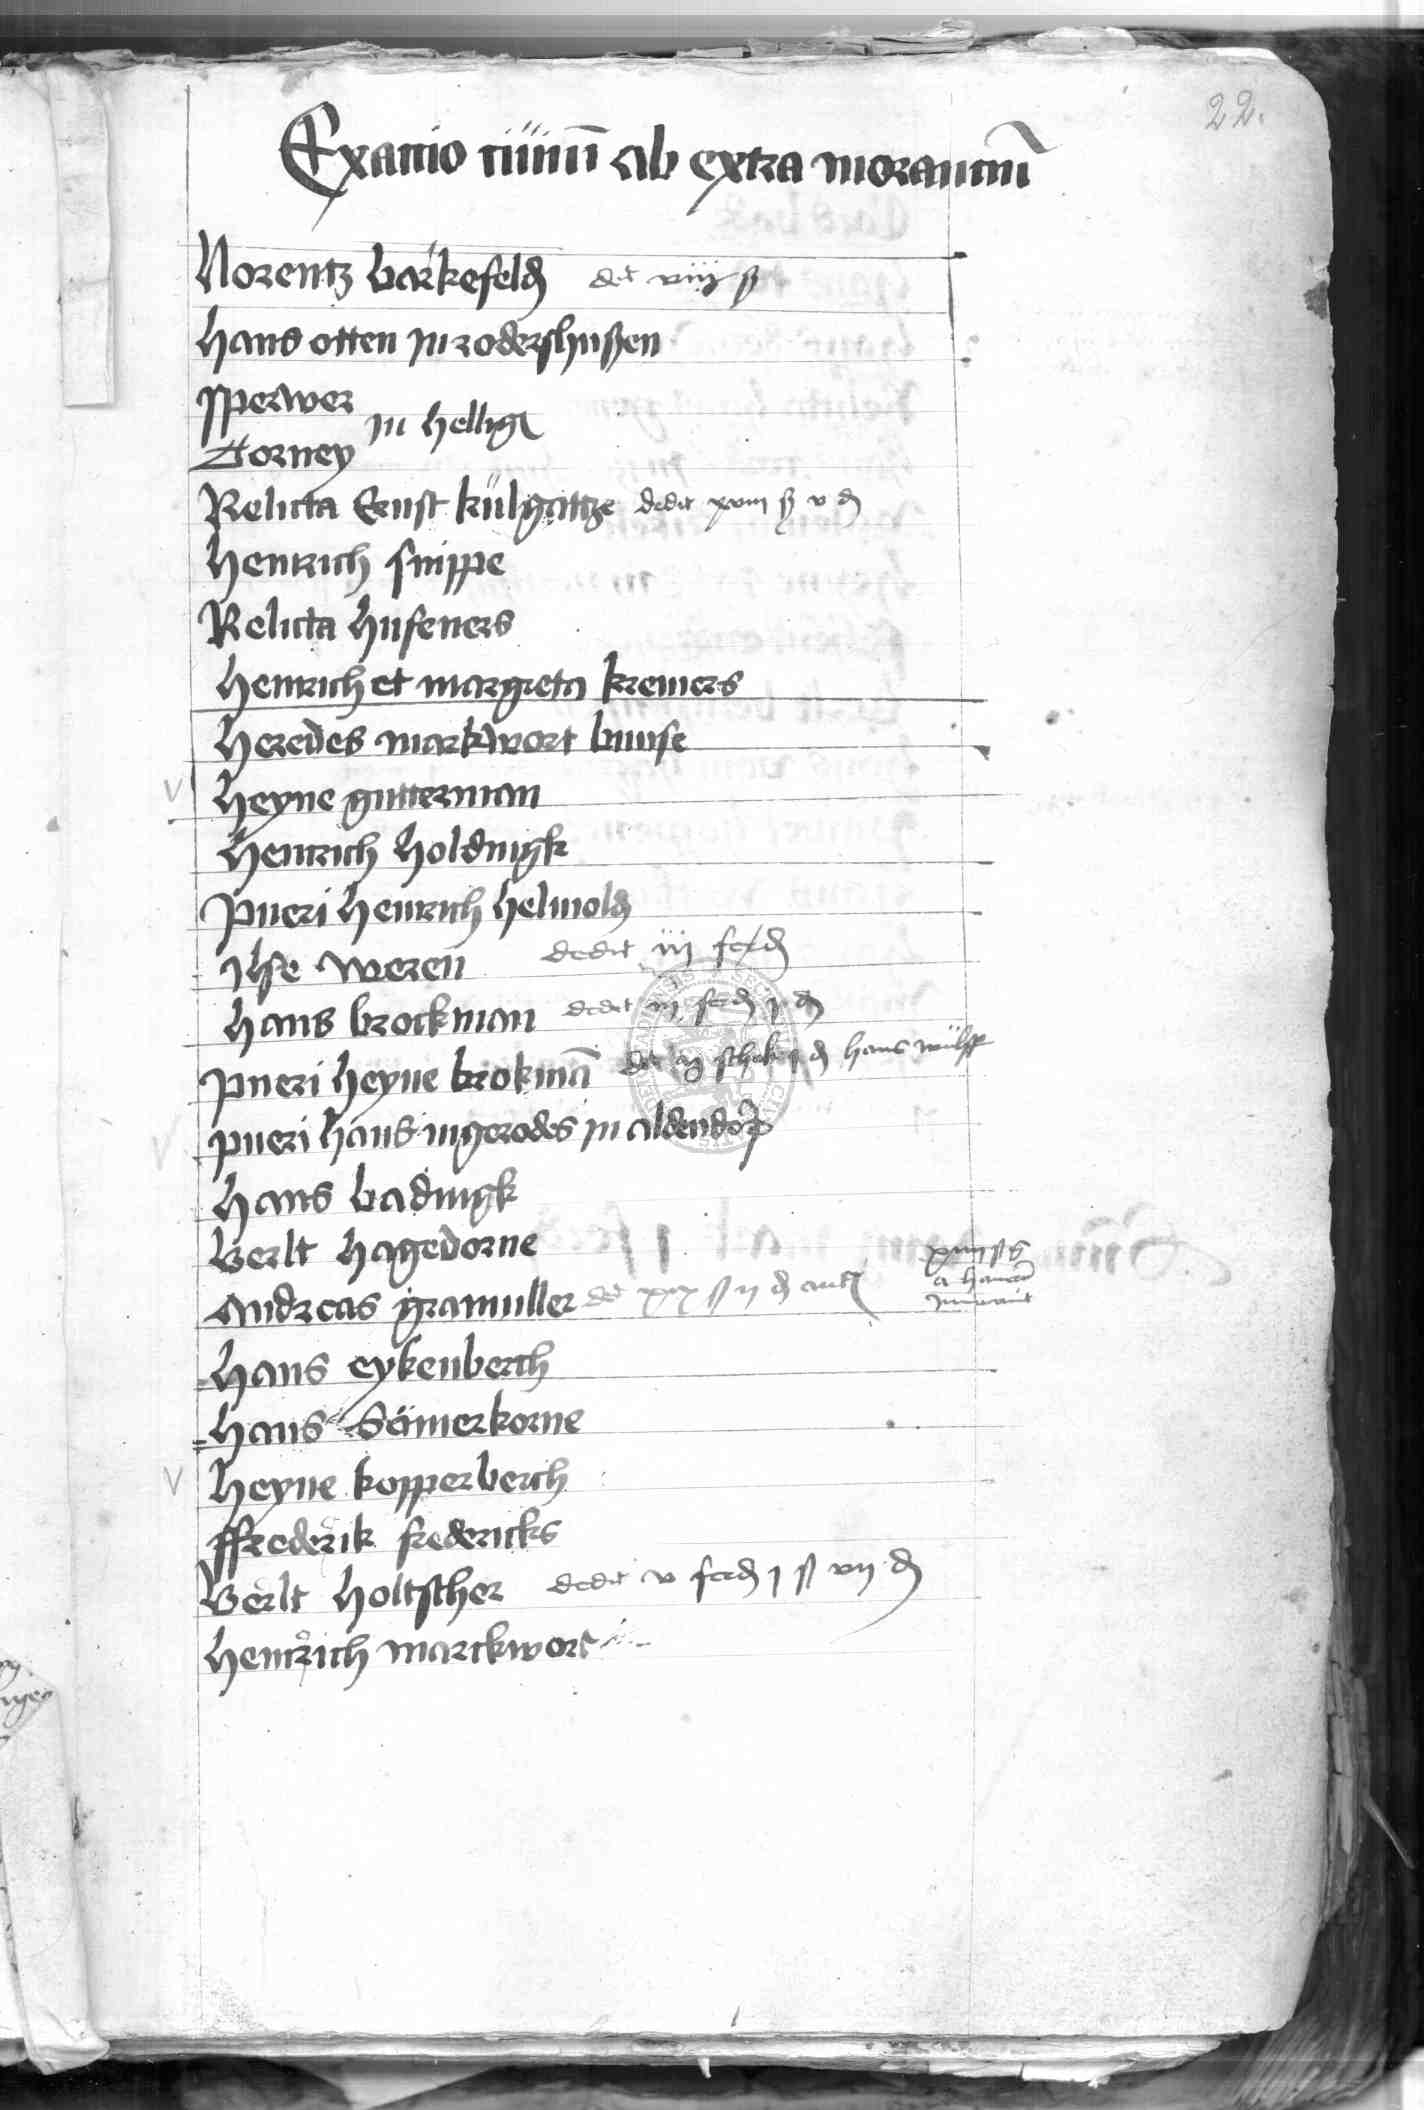 22.
Exactio civium ab extra morantium
Norentz barkefeld dedit viiij ß
Hans otten in rodershusen
Sperwer
in hellig
Torney
Relicta Ernst külgattze dedit xviij ß v d
Henrich snippe
Relicta huseners
Henrich et margreta kremers
Heredes markwort bunse
Heyne gutterman
Henrich holdnigk
Pueri henrich helmold
Ilse weren dedit iij ferd
Hans brockman dedit iij ferd j d
Pueri heyne brokman hans wülff
pueri hans ingerodes in aldendorp
Hans badnigk
Berlt hagedorne
Andreas gramuller dedit xix ß ij d
Hans eykenberch
Hans Sömerkorne
Heyne kopperberch
ffrederik fredericks
Berlt holtscher dedit v ferd j ß vij d
Henrich marckwort